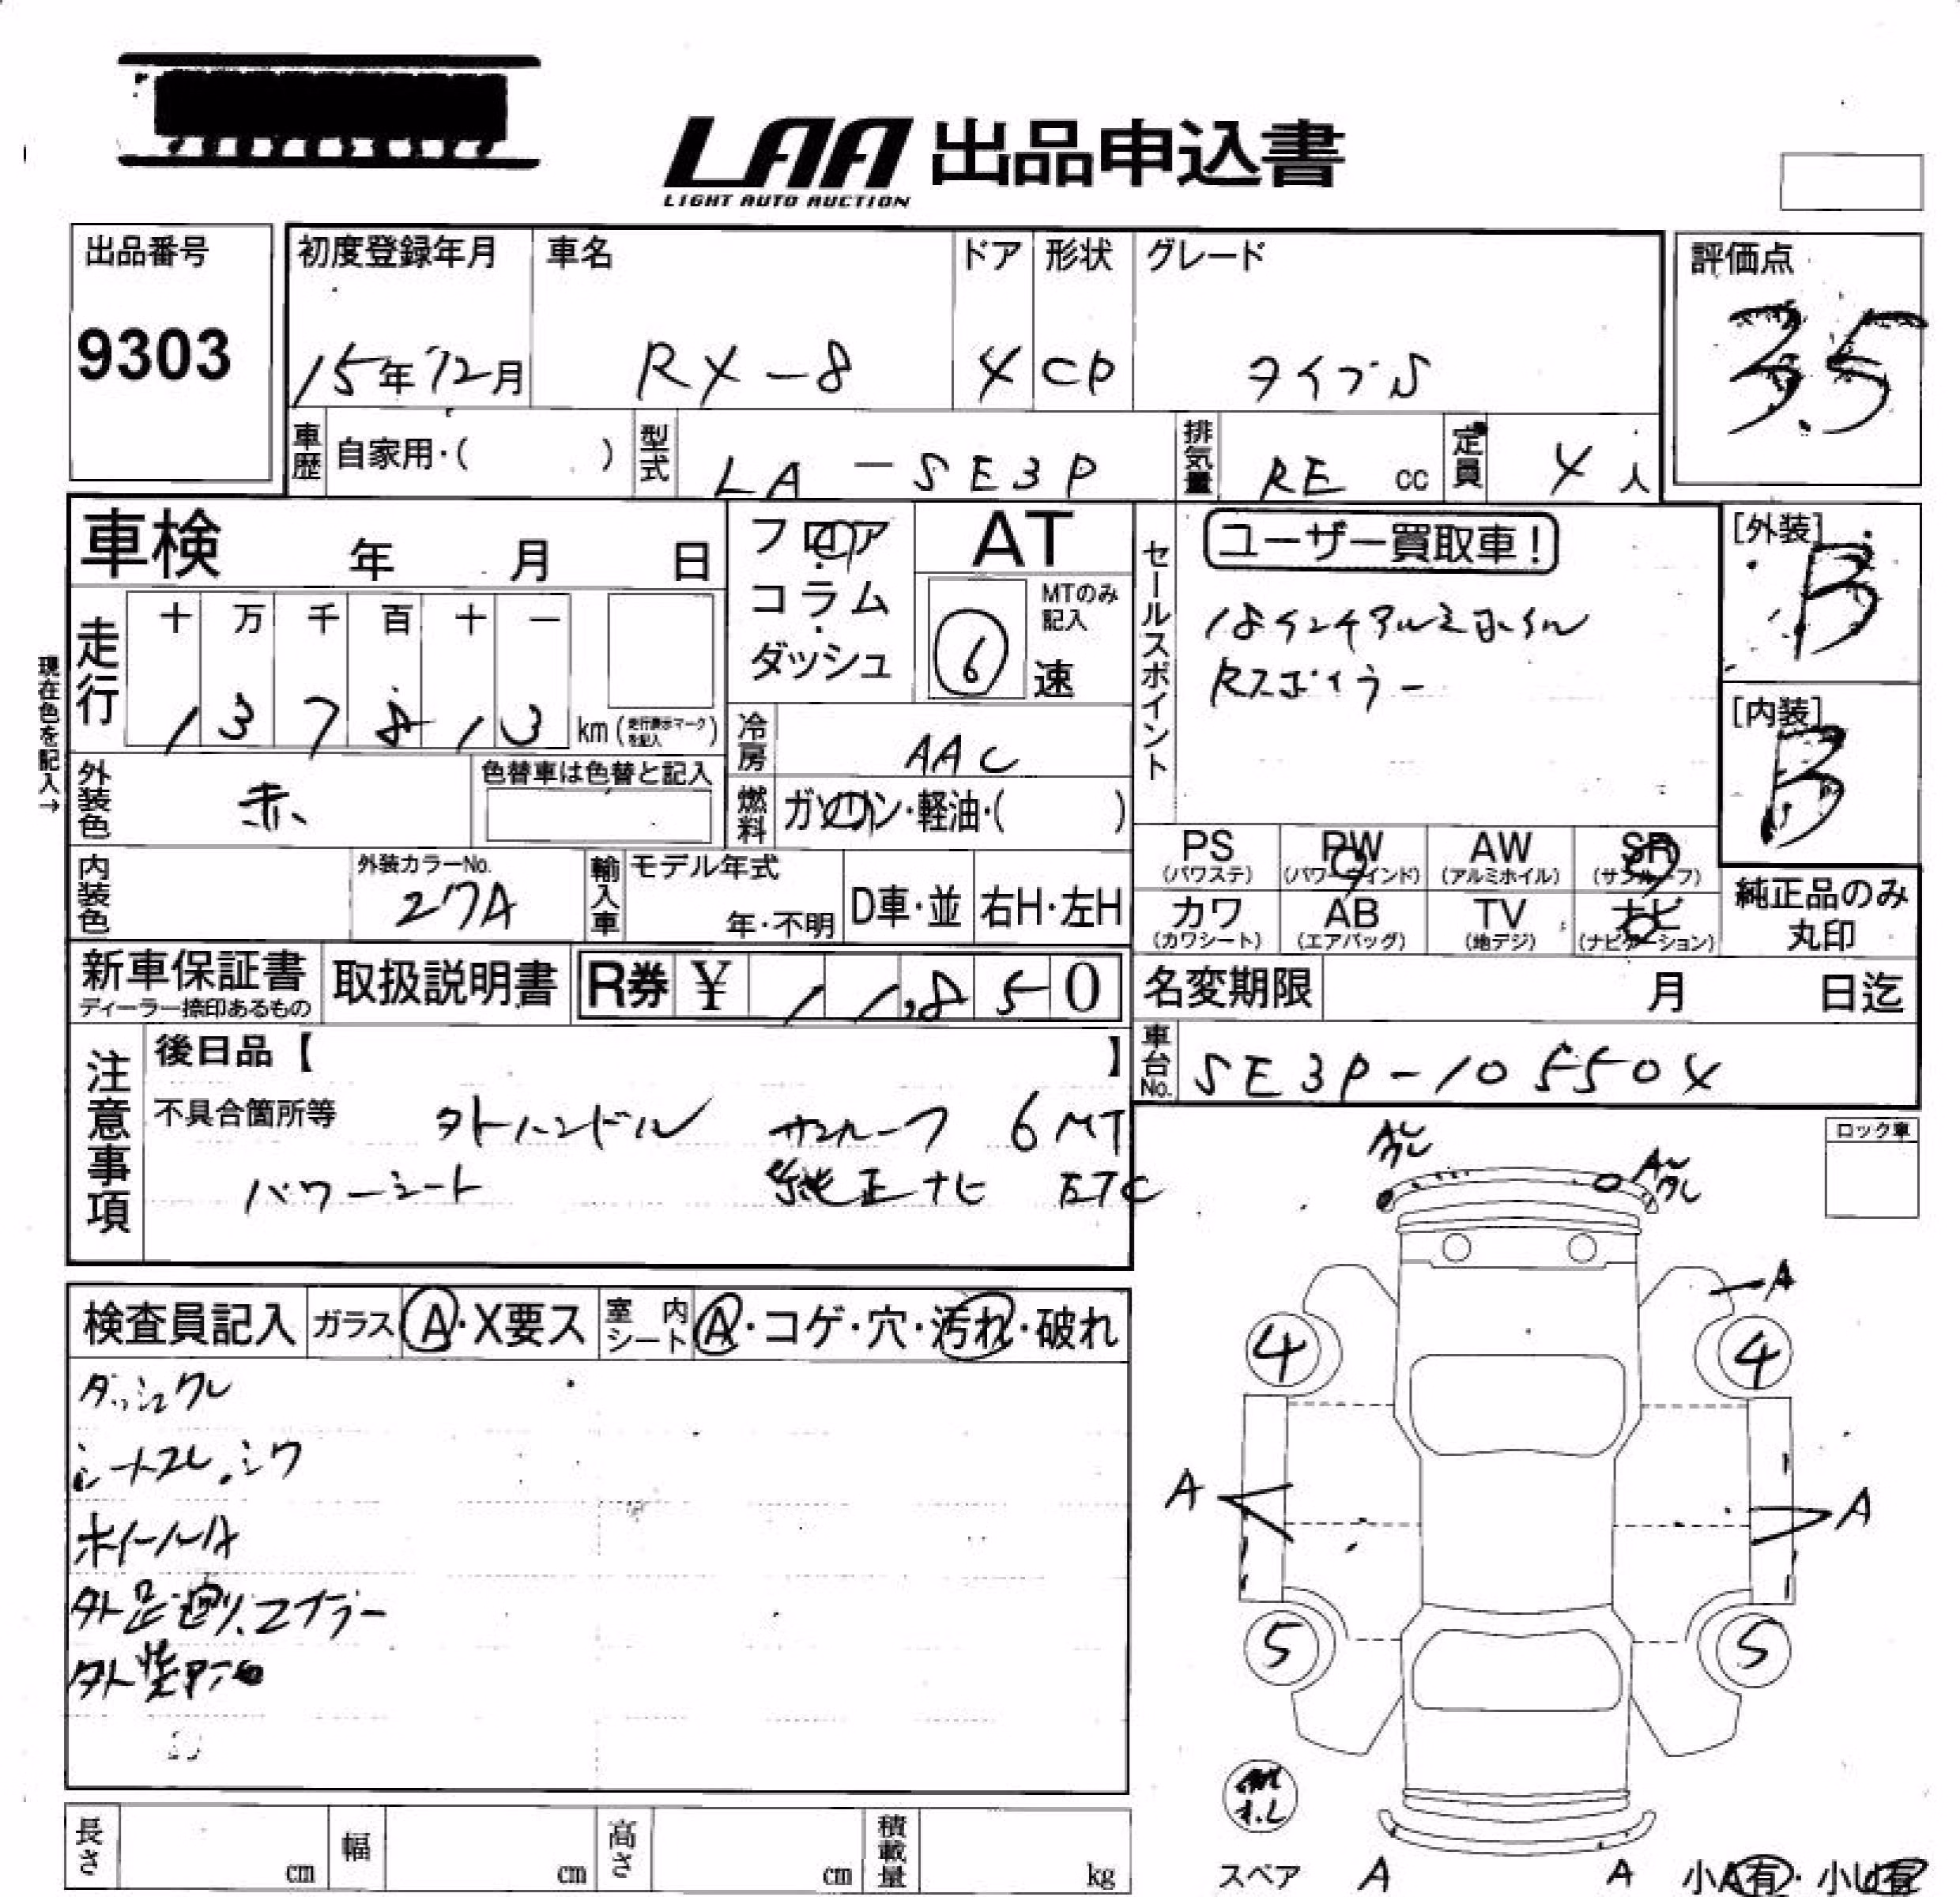 LAA 出品申込書
LIGHT AUTO AUCTION
出品番号
9303
初度登録年月
15年12月
車名
RX-8
ドア
4
形状
CP
グレード
タイプS
評価点
3.5
車歴 自家用・( )
型式 LA-SE3P
排気量 RE cc
定員 4人
車検 年 月 日
フロア
コラム
ダッシュ
AT
6
MTのみ記入
速
現在色を記入→
走行
十 万 千 百 十 一
1 3 7 8 1 3 km (走行表示マークを記入)
冷房 AAC
外装色 赤
色替車は色替と記入
燃料 ガソリン・軽油・( )
内装色
外装カラーNo.
27A
輸入車
モデル年式
年・不明
D車・並
右H・左H
新車保証書
ディーラー捺印あるもの
取扱説明書
R券 ¥ 11,850
セールスポイント
ユーザー買取車!
18インチアルミホイル
Rスポイラー
[外装]
B
[内装]
B
PS
(パワステ)
PW
(パワーウインド)
AW
(アルミホイル)
SR
(サンルーフ)
カワ
(カワシート)
AB
(エアバッグ)
TV
(地デジ)
ナビ
(ナビゲーション)
純正品のみ
丸印
名変期限 月 日迄
車台No. SE3P-105504
注意事項
後日品【 】
不具合箇所等
外ハンドル サンルーフ 6MT
パワーシート 純正ナビ ETC
ロック車
検査員記入
ガラス A・X要ス
室内シート A・コゲ・穴・汚れ・破れ
ダッシュワレ
シートスレ.シワ
ホイールA
外足廻り.マフラー
A
4 4
A A
5 5
スペア
A A
小A有・小U有
長さ cm
幅 cm
高さ cm
積載量 kg